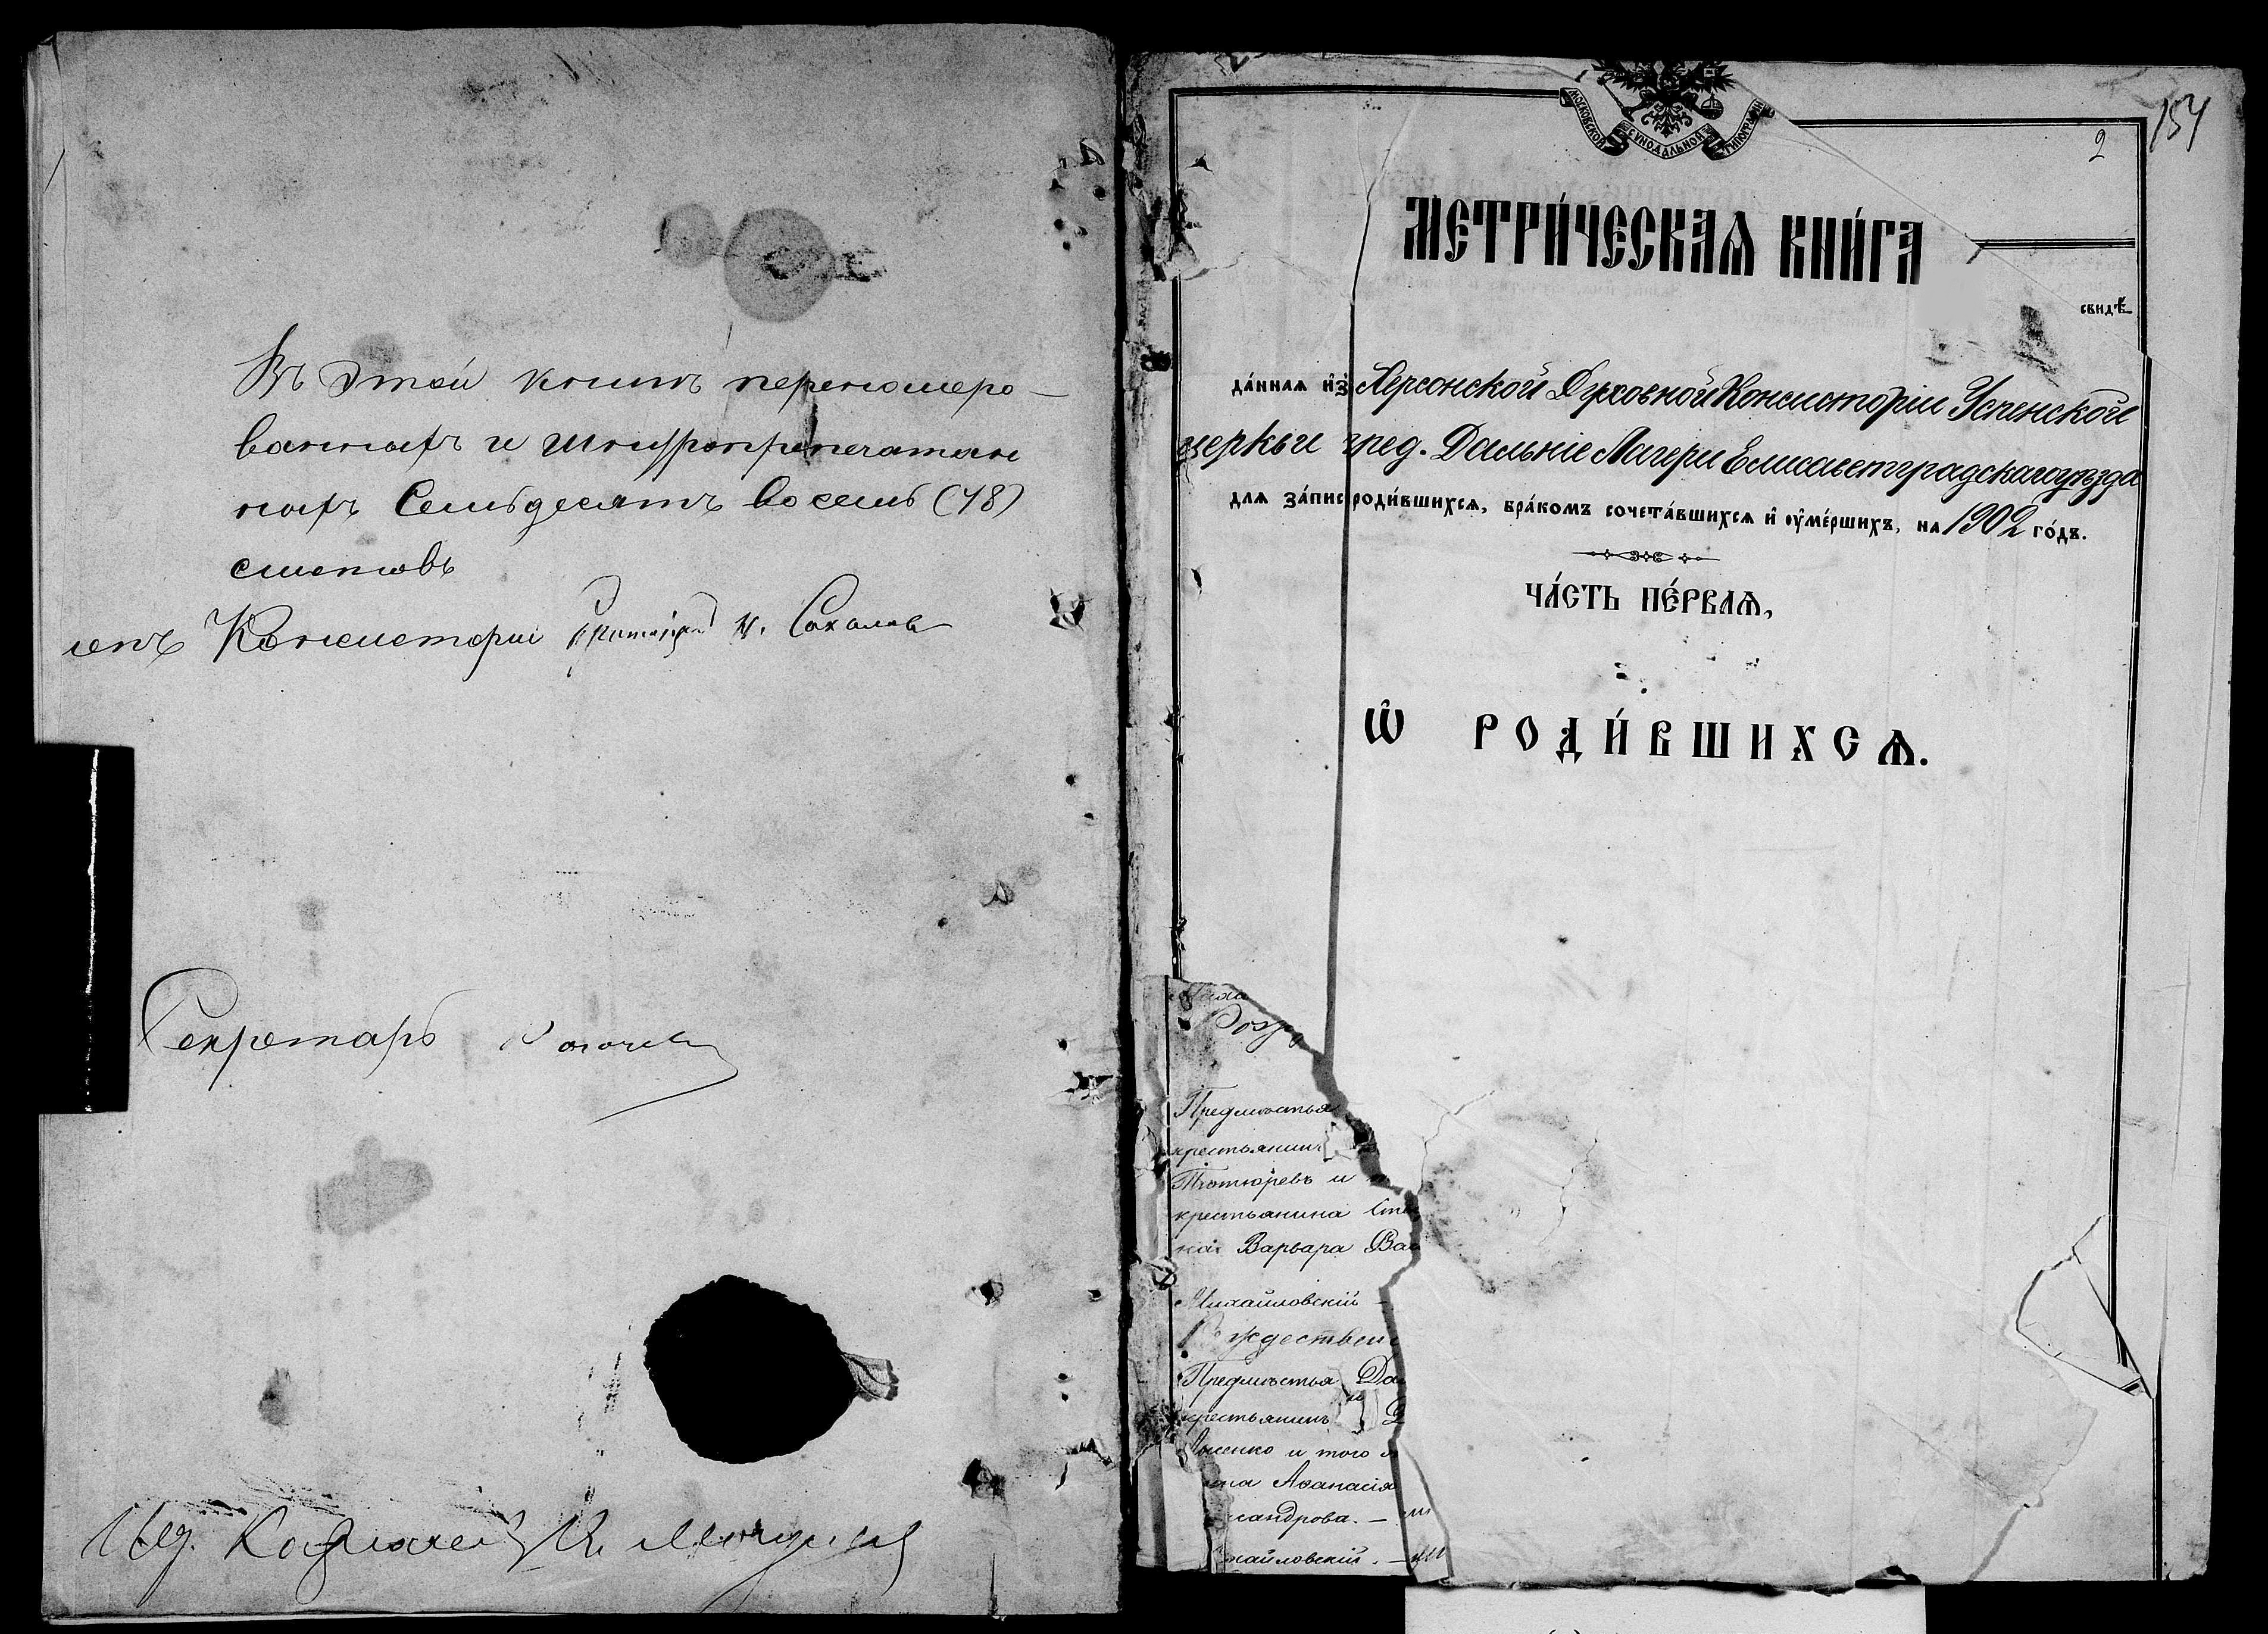 Въ этой книгѣ перенумеро-
ванныхъ и шнуропрепечатан
ныхъ Семьдесятъ восемь (78)
листовъ
Консисторіи Н. Соколовъ
Секретарь
МОСКОВСКОЙ СѴНОДАЛЬНОЙ ТИПОГРАФІИ
154
2
МЕТРИ́ЧЕСКАѦ КНИ́ГА
свидѣ
да́ннаѧ и҆з̾ Херсонской Духовной Консисторіи Успенской
церкви пред. Дальніе Лагери Елисаветградскаго уѣзда
для за́пис роди́вшихсѧ, бра́комъ сочета́вшихсѧ и҆ ѹ҆ме́ршихъ, на 1902 го́дъ.
ЧА́СТЬ ПЕ́РВАѦ,
Ѽ РОДИ́ВШИХСѦ.
Предмѣстья
крестьянинъ
Тютюревъ и
крестьянина
Варвара
Михайловскій -
Предмѣстья
крестьянинъ
и того
Аѳанасія
сандрова. -
хайловскій. -